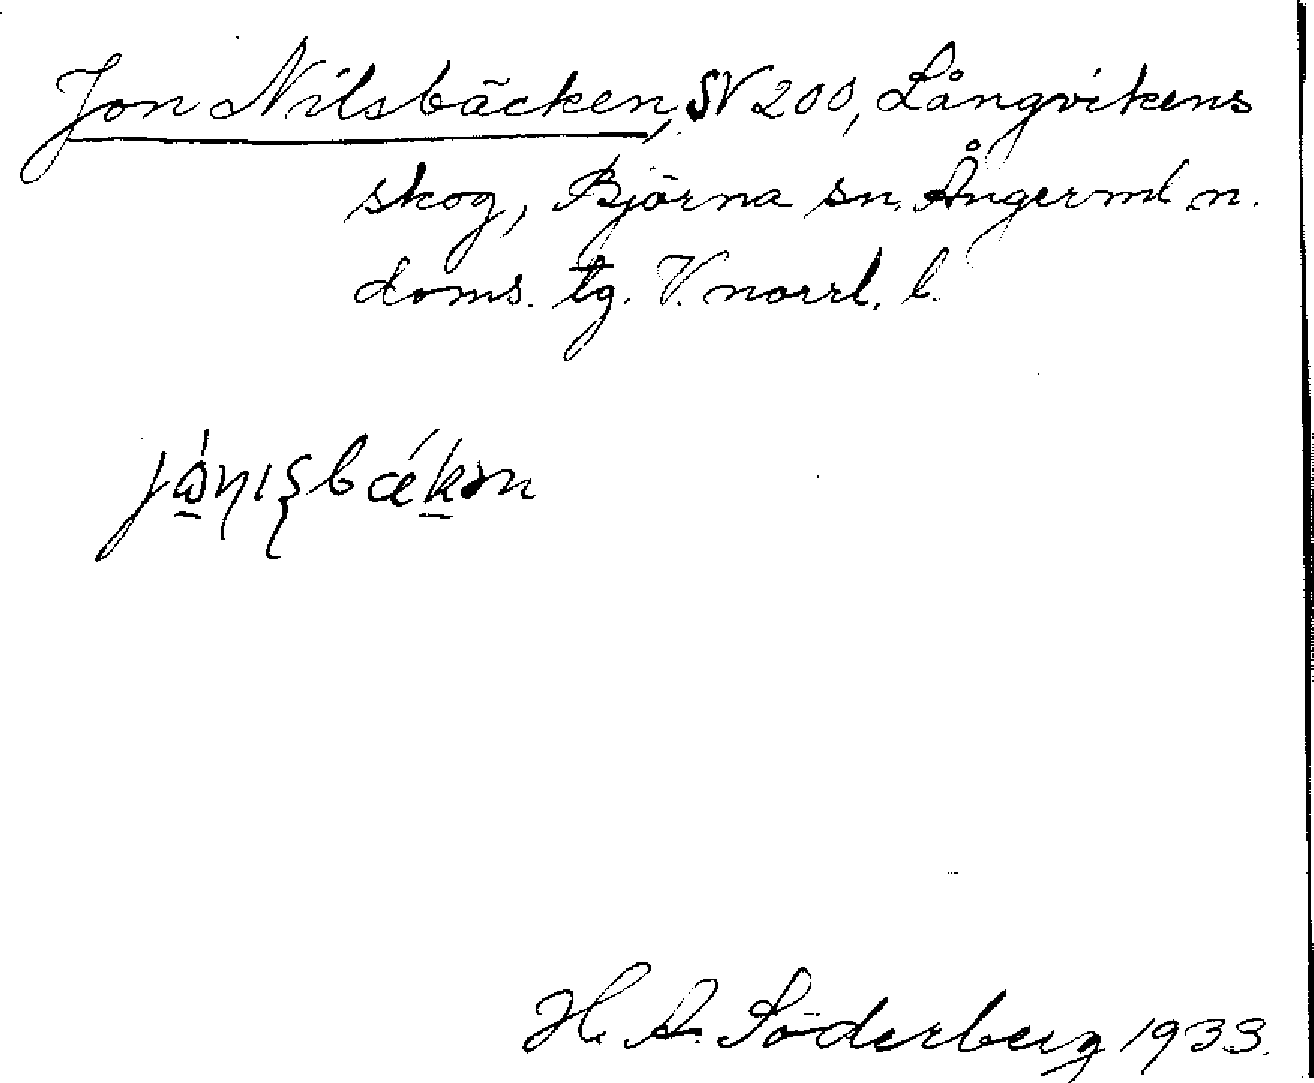 Jon Nilsbäcken, SV 200, Långvikens
skog, Björna sn. Ångerml n.
doms. tg. V. norrl. l.
H. A. Söderberg 1933.